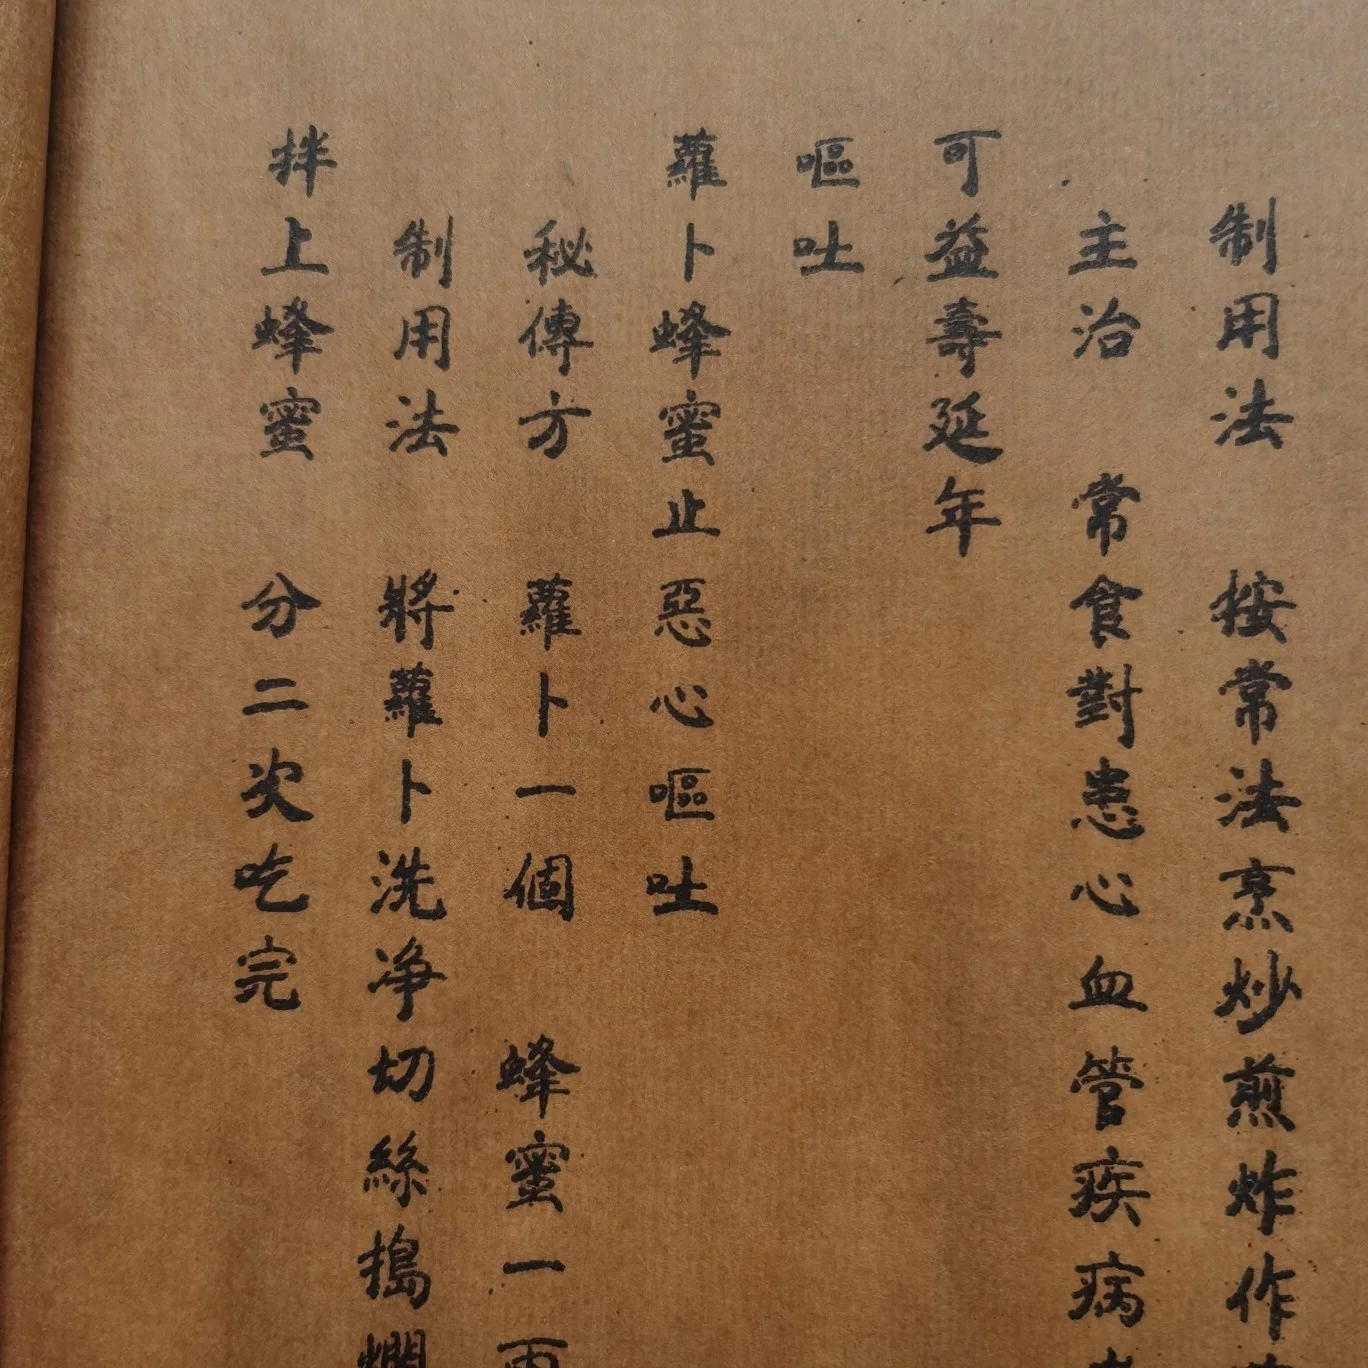 制用法 按常法烹炒煎炸作
主治 常食對患心血管疾病
可益壽延年
嘔吐
蘿卜蜂蜜止惡心嘔吐
秘傳方 蘿卜一個 蜂蜜一兩
制用法 將蘿卜洗净切絲搗爛
拌上蜂蜜 分二次吃完